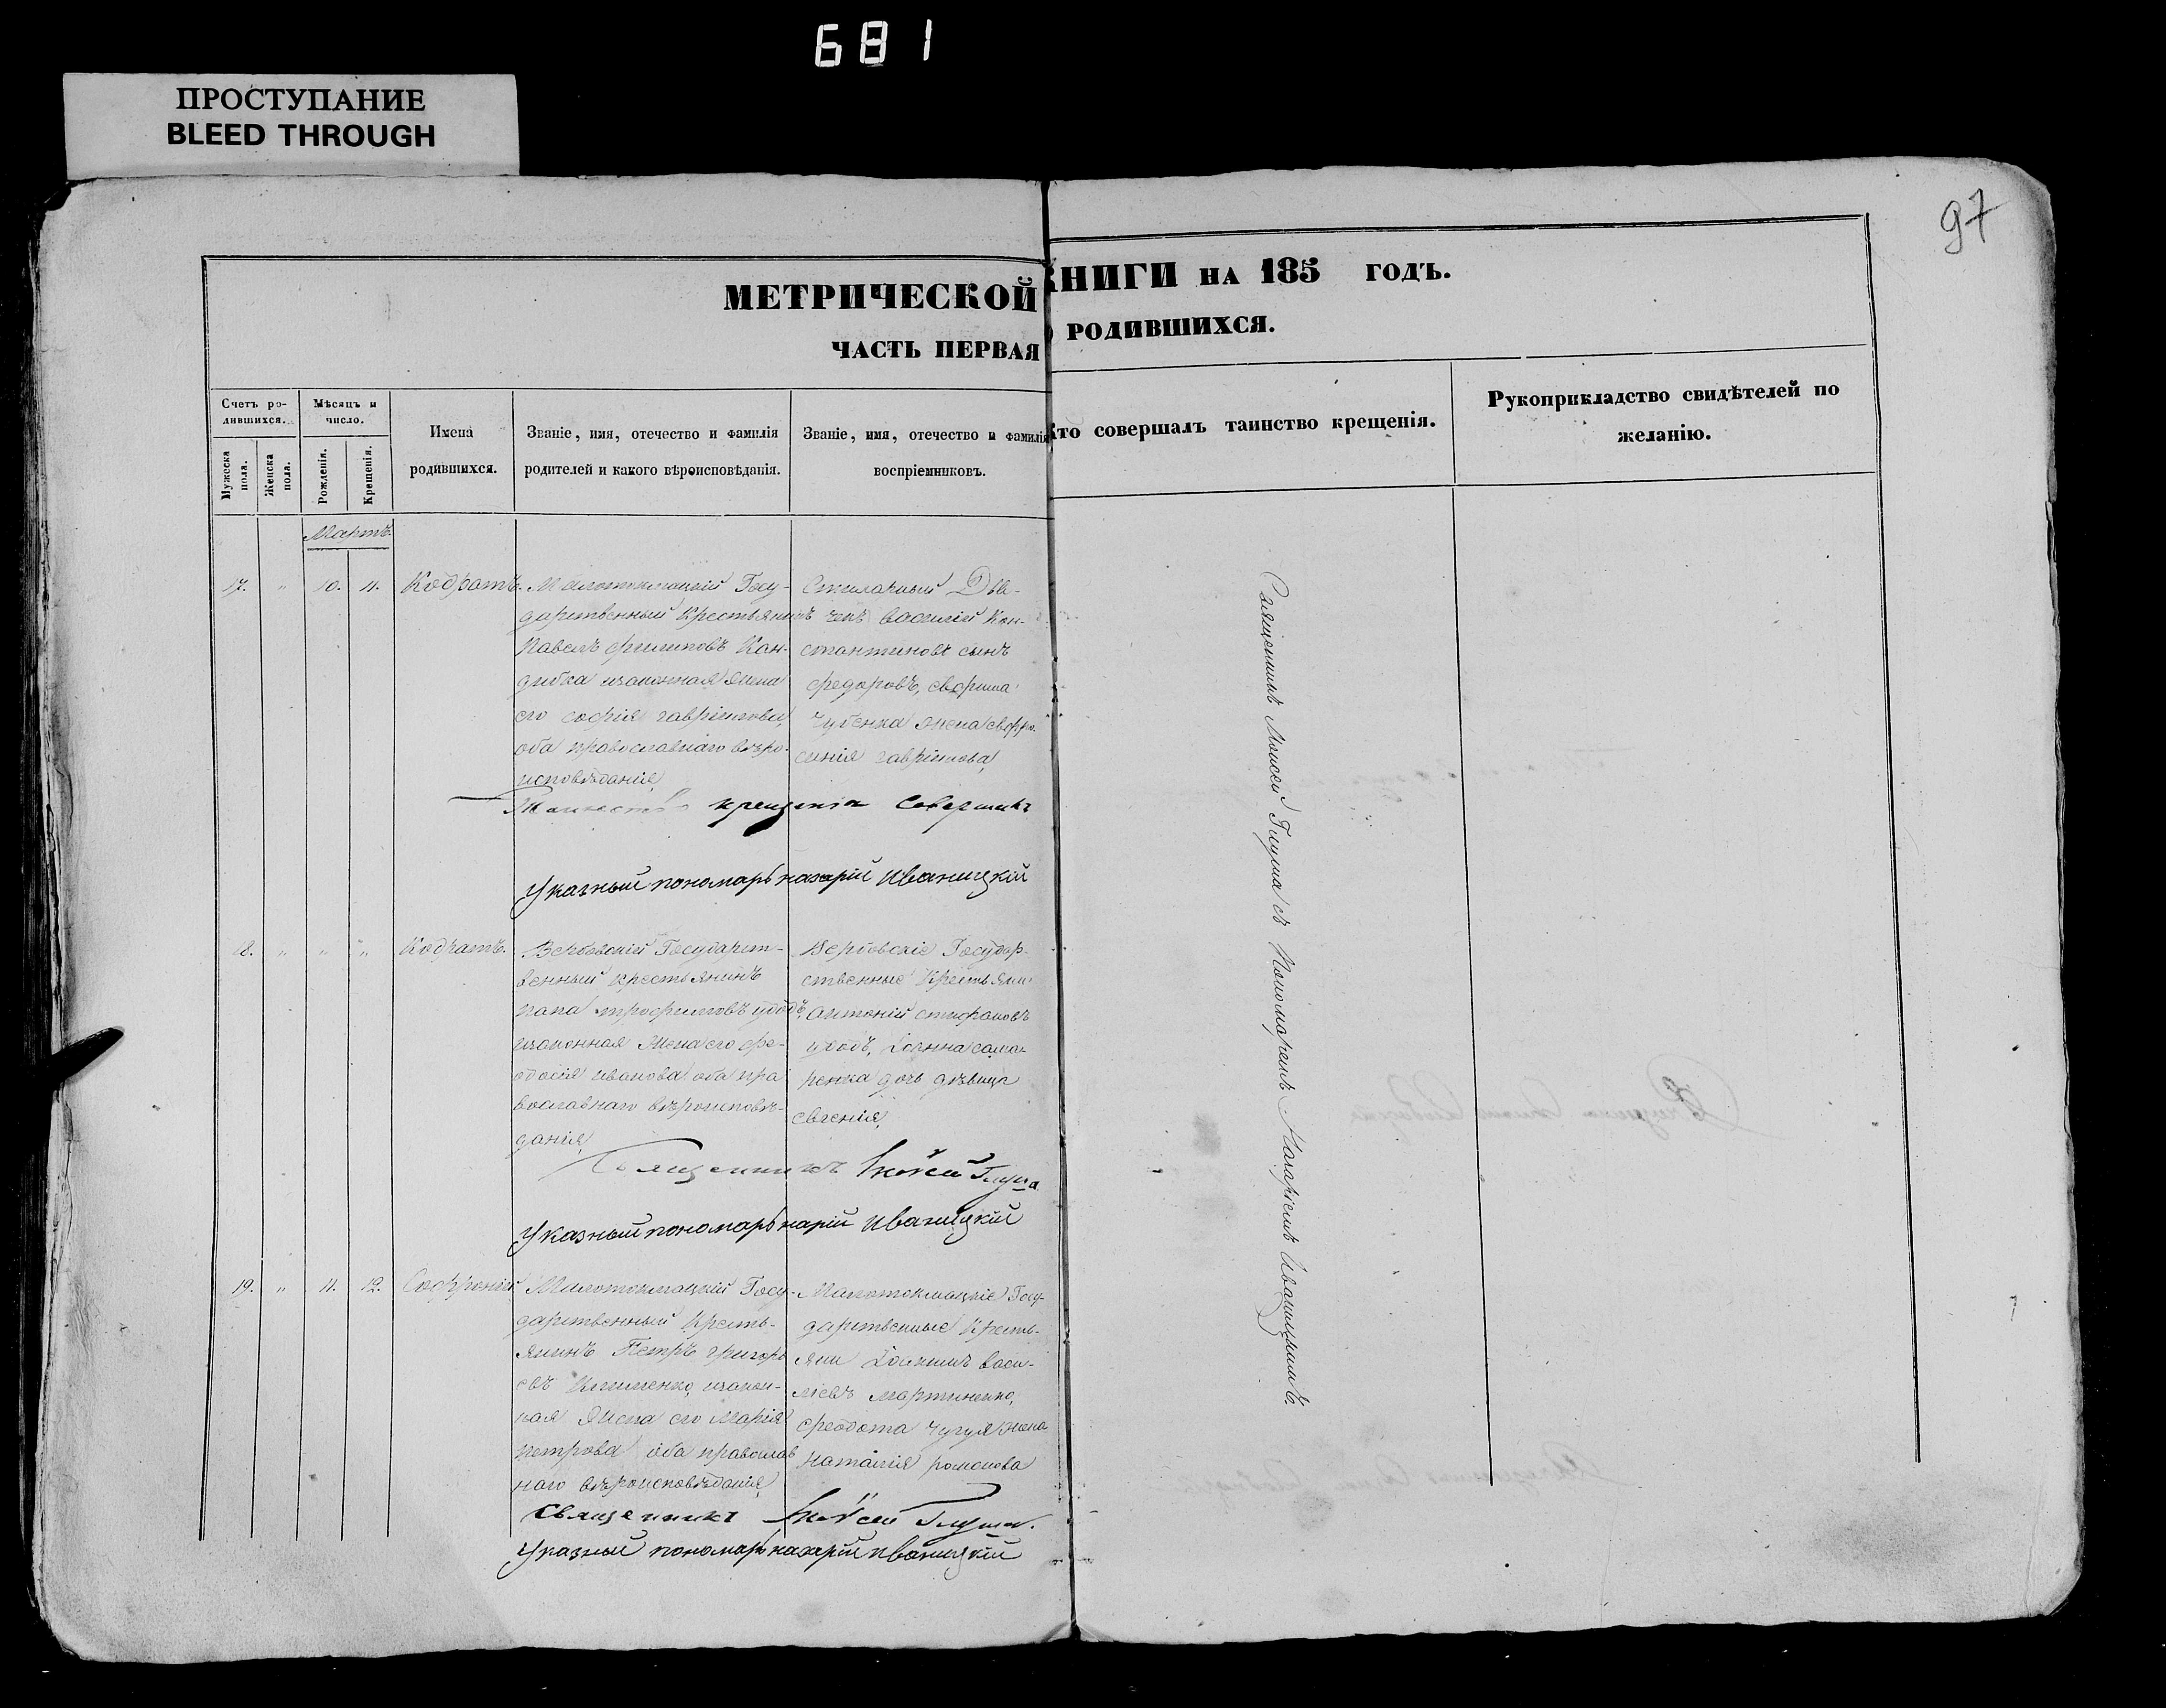 681
ПРОСТУПАНИЕ
BLEED THROUGH
97
МЕТРИЧЕСКОЙ КНИГИ НА 185 ГОДЪ.
ЧАСТЬ ПЕРВАЯ О РОДИВШИХСЯ.
Счетъ ро-
дившихся.
Мѣсяцъ и
число.
Мужеска
пола.
Женска
пола.
Рожденія.
Крещенія.
Имена
родившихся.
Званіе, имя, отечество и фамилія
родителей и какого вѣроисповѣданія.
Званіе, имя, отечество и фамилія
воспріемниковъ.
Кто совершалъ таинство крещенія.
Рукоприкладство свидѣтелей по
желанію.
Мартъ.
17. " 10. 11. Кодратъ.
Малотокмацкій Госу-
дарственный Крестьянинъ
Павелъ филиповъ Кан-
дибка изаконная Жена
его софія гавріилова,
оба православнаго вѣро-
исповѣданія,
василій Кон-
стантиновъ сынъ
федоровъ,
Жена евфро-
синія гавріилова,
Таинство крещенія Совершилъ
Указный пономарь назарій Иваницкій
18. " " " Кодратъ.
Вербовскій Государст-
венный крестьянинъ
трофимовъ удодъ,
изаконная Жена его фе-
одосія иванова оба пра-
вославнаго вѣроисповѣ-
данія,
Вербовскіе Государ-
ственные Крестьяни
антоній стефановъ
удодъ,
дочь дѣвица
евгенія,
Священникъ Моѵсей Глума
Указный пономарь нарій Иваницкій
19. " 11. 12. Софроній
Малотокмацкій Госу-
дарственный Кресть-
янинъ Петръ григорь
евъ Клименко, изакон-
ная Жена его Марія
петрова оба православ
наго вѣроисповѣданія,
Малотокмацкіе Госу-
дарственные Кресть-
яни васи-
ліевъ мартиненко,
феодота чугуя жена
наталія романова
Священникъ Моѵсей Глума.
Указный пономарь назарій иваницкій
Священникъ Моисей Глума съ Пономаремъ Назаріемъ Иваницкимъ